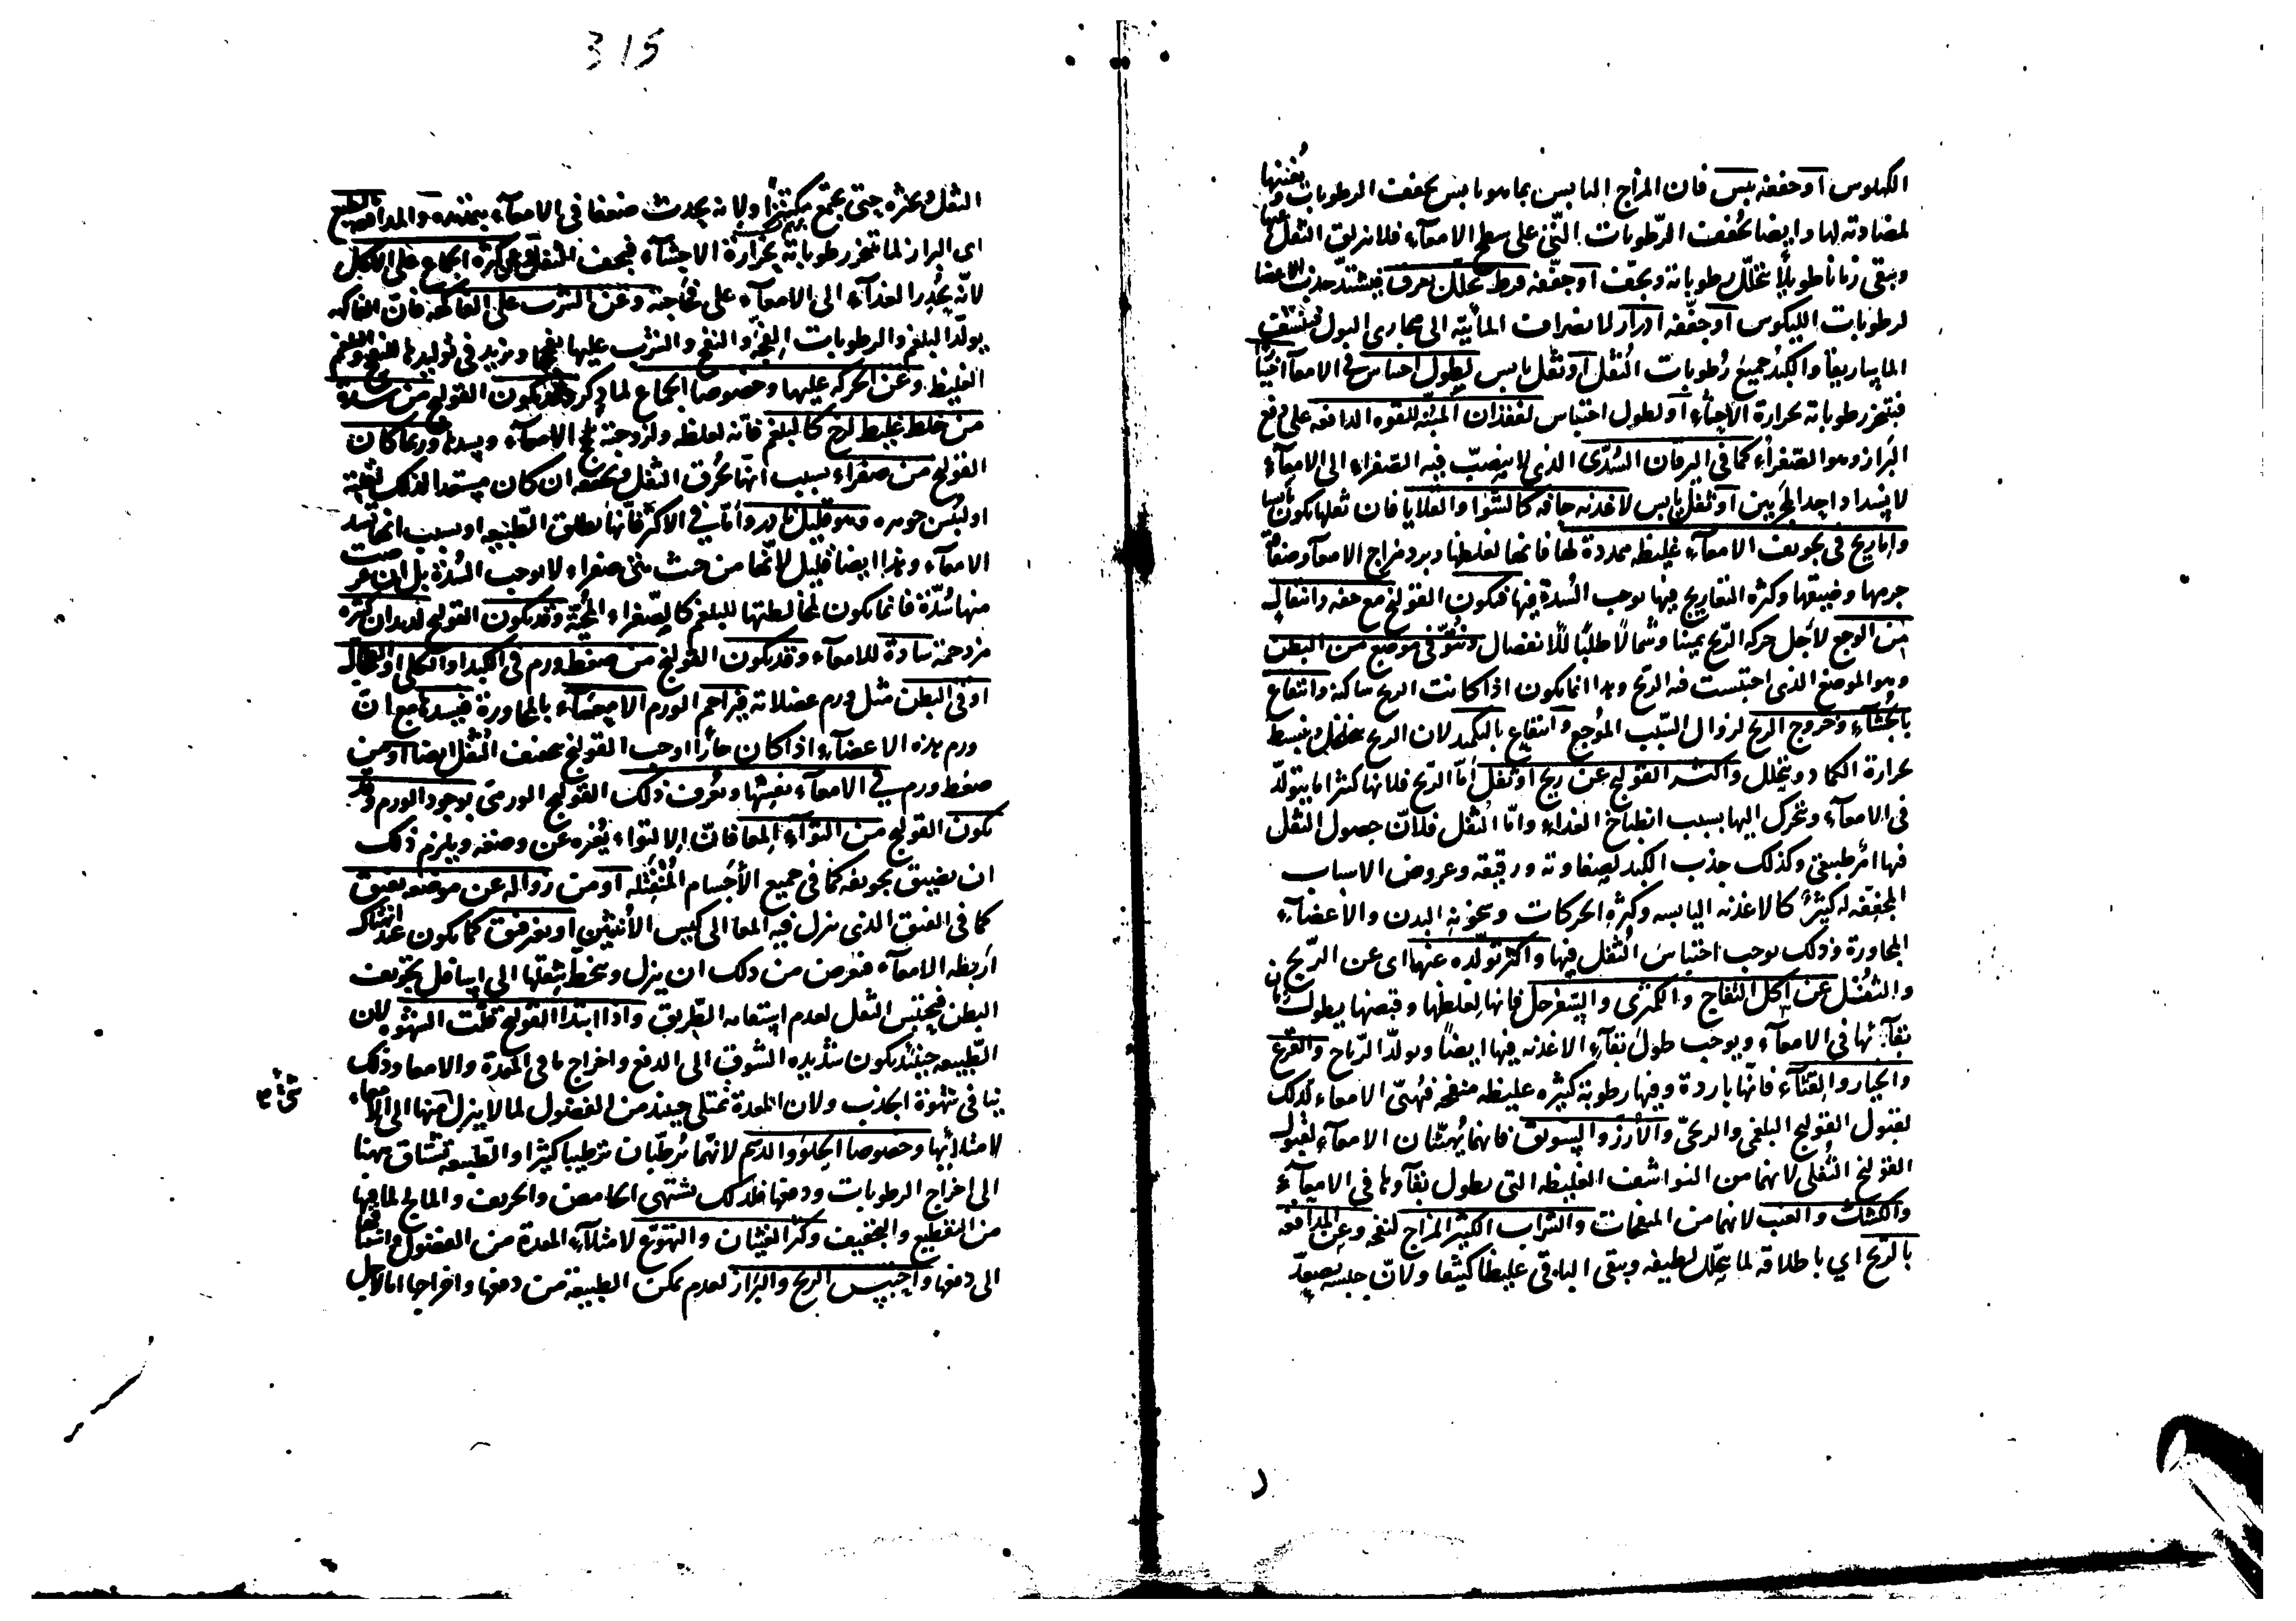 الكيلوس او جففه يبس فان المزاج اليابس بما هو يابس يجفف الرطوبات ويفنيها
لمضادته لها وايضا يجفف الرطوبات التي على سطح الامعاء فلا ينزلق الثفل عنها
ويبقى زمانا طويلا يتحلل رطوباته ويجف او جففه فرط تحلل بعرق فيشتد جذب الاعضا
لرطوبات الكيلوس او جففه ادرار لانصراف المائية الى مجارى البول فينشف
الماساريقا والكبد جميع رطوبات الثفل او ثفل يابس لطول احتباس فى الامعا
فيتبخر رطوباته بحرارة الاحشاء او لطول احتباس لفقدان المنبه للقوه الدافعه على دفع
البراز وهو الصفراء كما فى اليرقان السددى الذى لا ينصب فيه الصفراء الى الامعاء
لانسداد احد المجريين او ثفل يابس لاغذيه جافه كالشوا والقلايا فان ثفلها يكون يابسا
واما ريح فى تجويف الامعاء غليظه ممددة لها فانها لغلظها وبرد مزاج الامعا وصفاقة
جرمها وضيقها وكثره التعاريج فيها يوجب السدة فيها فيكون القولنج مع خفه وانتقال
من الوجع لاجل حركه الريح يمينا وشمالا طلبا للانفصال ونتو فى موضع من البطن
وهو الموضع الذى احتبست فيه الريح وهذا انما يكون اذا كانت الريح ساكنه وانتفاع
بالجشاء وخروج الريح لزوال السبب الموجع وانتفاع بالتكميد لان الريح يتخلخل وينبسط
بحرارة الكماد ويتحلل واكثر القولنج عن ريح او ثفل اما الريح فلانها كثيرا ما يتولد
فى الامعاء ويتحرك اليها بسبب انطباخ الغذاء واما الثفل فلان حصول الثفل
فيها امر طبيعى وكذلك جذب الكبد لصفاوته ورقيقه وعروض الاسباب
المجففه له كثير كالاغذيه اليابسه وكثره الحركات وسخونه البدن والاعضاء
المجاورة وذلك يوجب احتباس الثفل فيها واكثر تولده عنهما اى عن الريح
والثفل عن اكل التفاح والكمثرى والسفرجل فانها لغلظها وقبضها يطول زمان
بقائها فى الامعاء ويوجب طول بقاء الاغذيه فيها ايضا ويولد الرياح والقرع
والخيار والقثاء فانها باردة وفيها رطوبة كثيره غليظه منفخه فتهيئ الامعاء لذلك
لقبول القولنج البلغمى والريحى والارز والسويق فانهما يهيئان الامعاء لقبول
القولنج الثفلى لانهما من النواشف الغليظه التى يطول بقاوها فى الامعاء
والكشك والعنب لانهما من المنفخات والشراب الكثير المزاج لنفخه وعن المدافعه
بالريح اي باطلاقه لما يتحلل لطيفه ويبقى الباقى غليظا كثيفا ولان حبسه يصعد
الثفل ويحزه حتى يجتمع مكتنزا ولانه يحدث ضعفا فى الامعاء بتمديده والمدافعه بالطبع
اى البراز لما تتبخر رطوباته بحرارة الاحشاء فيجف الثفل وعن كثره الجماع على الاكل
لانه يحدر الغذاء الى الامعاء على فجاجته وعن الشرب على الفاكهه فان الفاكهه
يولد البلغم والرطوبات الفجه والنفخ والشرب عليها يفججها ويزيد فى توليدها للنفخ والبلغم
الغليظ وعن الحركه عليها وخصوصا الجماع لما ذكر وقد يكون القولنج من سدة
من خلط غليظ لزج كالبلغم فانه لغلظه ولزوجته يلج الامعاء ويسدها وربما كان
القولنج من صفراء بسبب انها تحرق الثفل وتجففه ان كان مستعدا لذلك لقلته
او ليبس جوهره وهو قليل نادر واما فى الاكثر فانها تطلق الطبيعه او بسبب انها تسد
الامعاء وهذا ايضا قليل لانها من حيث هى صفراء لا يوجب السدة بل ان عرضت
منها سدة فانما يكون لمخالطتها للبلغم كالصفراء المحية وقد يكون القولنج لديدان كثيره
مزدحمة سادة للامعاء وقد يكون القولنج من ضغط ورم فى الكبد او الكلى او الطحال
او فى البطن مثل ورم عضلاته فيزاحم الورم الامعاء بالمجاورة فيسدها مع ان
ورم هذه الاعضاء اذا كان حارا اوجب القولنج بتجفيف الثفل ايضا او من
ضغط ورم فى الامعاء نفسها ويعرف ذلك القولنج الورمى بوجود الورم وقد
يكون القولنج من التواء المعا فان الالتواء يغيره عن وضعه ويلزم ذلك
ان يضيق تجويفه كما فى جميع الاجسام المنفتله او من زواله عن موضعه بفتق
كما فى الفتق الذى ينزل فيه المعا الى كيس الانثيين او بغير فتق كما يكون عند انهتاك
اربطه الامعاء فيعرض من ذلك ان ينزل وينحط بثقلها الى اسافل تجويف
البطن فيحتبس الثفل لعدم استقامه الطريق واذا ابتدا القولنج قلت الشهوه لان
الطبيعه حينئذ يكون شديده الشوق الى الدفع واخراج ما فى المعدة والامعا وذلك
ينافى شهوة الجذب ولان المعدة تمتلى حينئذ من الفضول لما لا ينزل منها الى الامعاء
لامتلائها وخصوصا الحلو والدسم لانهما يرطبان ترطيبا كثيرا والطبيعه تشتاق حينئذ
الى اخراج الرطوبات ودفعها فلذلك يشتهى الحامض والحريف والمالح لما فيها
من التقطيع والتجفيف وكثر الغثيان والتهوع لامتلاء المعدة من الفضول واشتياقها
الى دفعها واحتبس الريح والبراز لعدم تمكن الطبيعه من دفعها واخراجها اما لاجل
315